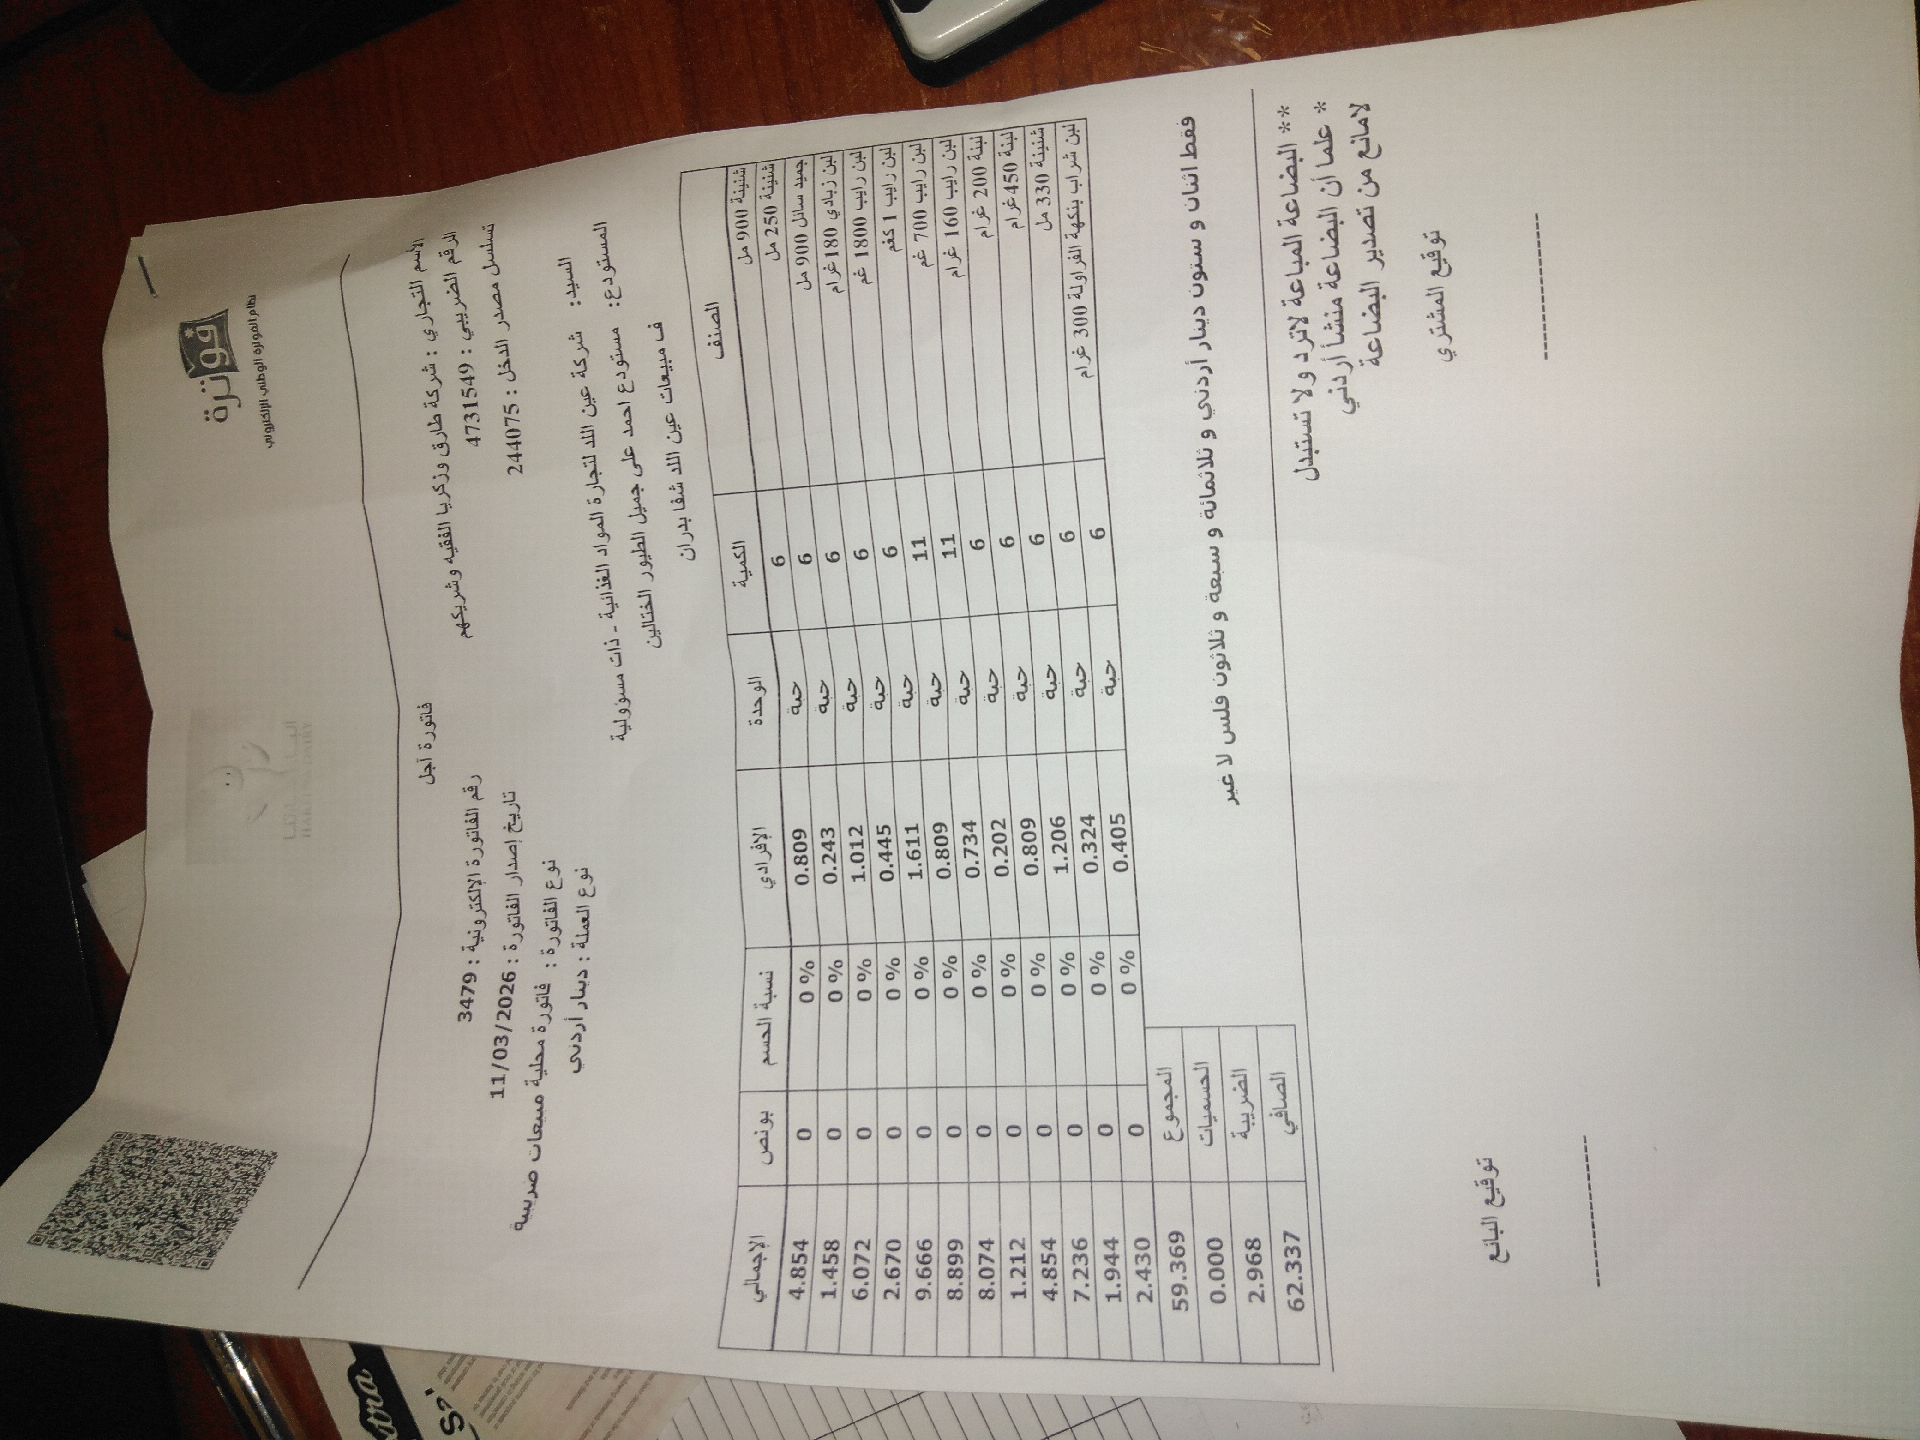 فوترة
نظام الفوترة الوطني الإلكتروني
فاتورة آجل
الاسم التجاري : شركة طارق وزكريا الفقيه وشريكهم
الرقم الضريبي : 4731549
تسلسل مصدر الدخل : 244075
رقم الفاتورة الإلكترونية : 3479
تاريخ إصدار الفاتورة : 11/03/2026
نوع الفاتورة : فاتورة محلية مبيعات ضريبية
نوع العملة : دينار أردني
السيد: شركة عين اللد لتجارة المواد الغذائية - ذات مسؤولية
المستودع: مستودع احمد على جميل الطيور الختالين
ف مبيعات عين اللد شفا بدران
الصنف الكمية الوحدة الإفرادي نسبة الحسم بونص الإجمالي
شنينة 900 مل 6 حبة 0.809 0 % 0 4.854
شنينة 250 مل 6 حبة 0.243 0 % 0 1.458
جميد سائل 900 مل 6 حبة 1.012 0 % 0 6.072
لبن زبادي 180 غرام 6 حبة 0.445 0 % 0 2.670
لبن رايب 1800 غم 6 حبة 1.611 0 % 0 9.666
لبن رايب 1 كغم 11 حبة 0.809 0 % 0 8.899
لبن رايب 700 غم 11 حبة 0.734 0 % 0 8.074
لبن رايب 160 غرام 6 حبة 0.202 0 % 0 1.212
لبنة 200 غرام 6 حبة 0.809 0 % 0 4.854
لبنة 450 غرام 6 حبة 1.206 0 % 0 7.236
شنينة 330 مل 6 حبة 0.324 0 % 0 1.944
لبن شراب بنكهة الفراولة 300 غرام 6 حبة 0.405 0 % 0 2.430
المجموع 59.369
الحسميات 0.000
الضريبة 2.968
الصافي 62.337
فقط اثنان و ستون دينار أردني و ثلاثمائة و سبعة و ثلاثون فلس لا غير
** البضاعة المباعة لاترد ولا تستبدل
* علما أن البضاعة منشأ أردني
لامانع من تصدير البضاعة
توقيع المشتري
توقيع البائع